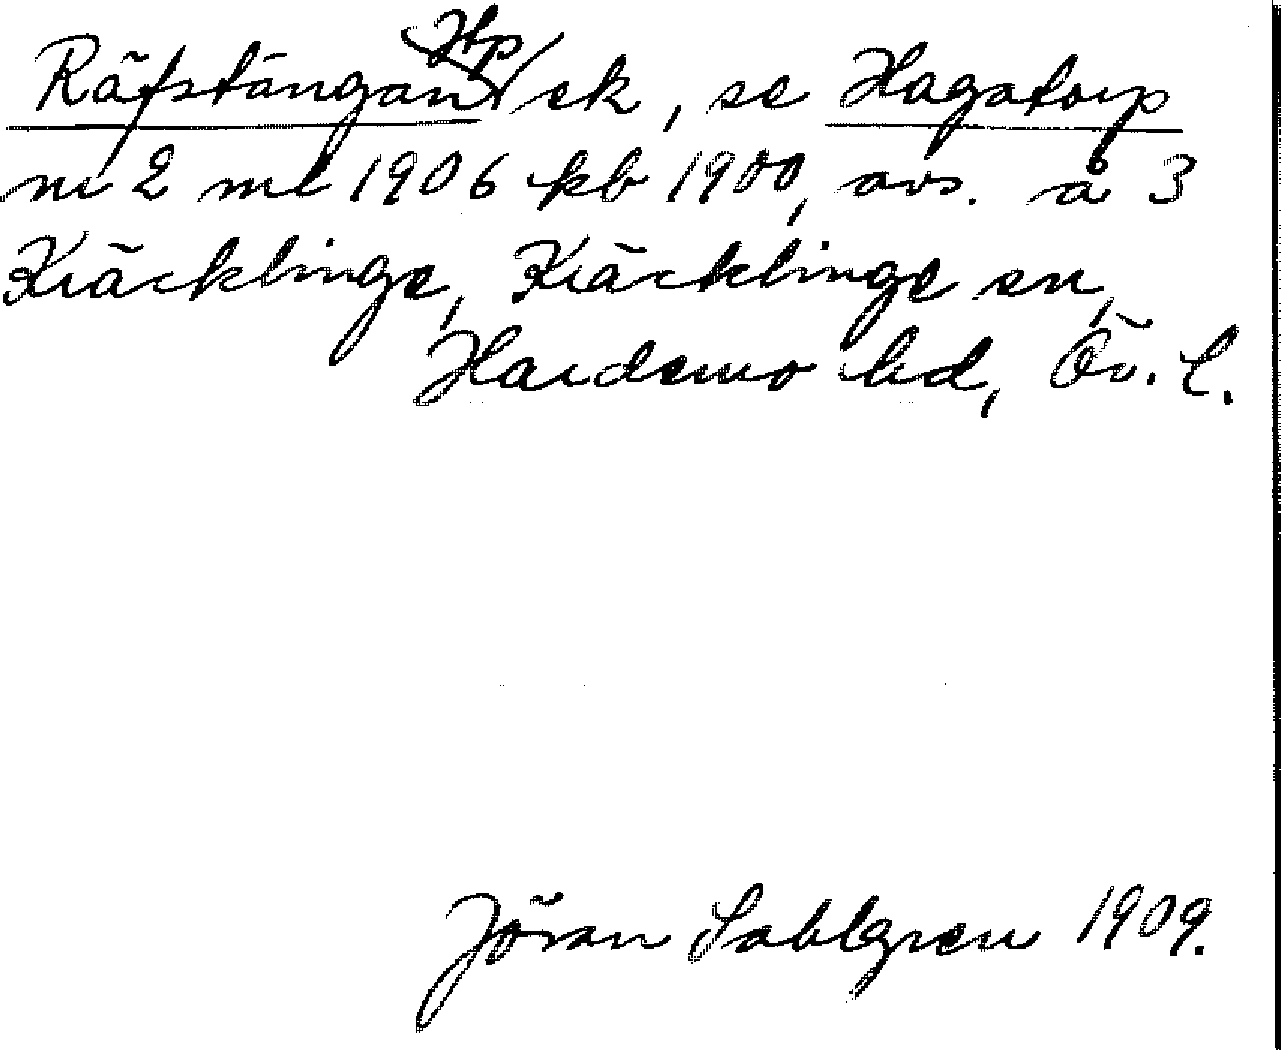 Räfstängan Htp ek, se Hagatorp
nr 2 ml 1906 kb 1900, avs. å 3
Kräcklinge, Kräcklinge sn,
Hardemo hd, Ör. l.
Jöran Sahlgren 1909.